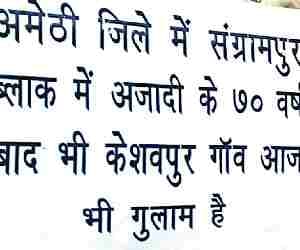 अमेठी जिले में संग्रामपुर
ब्लाक में अजादी के ७० वर्ष
बाद भी केशवपुर गॉव आज
भी गुलाम है